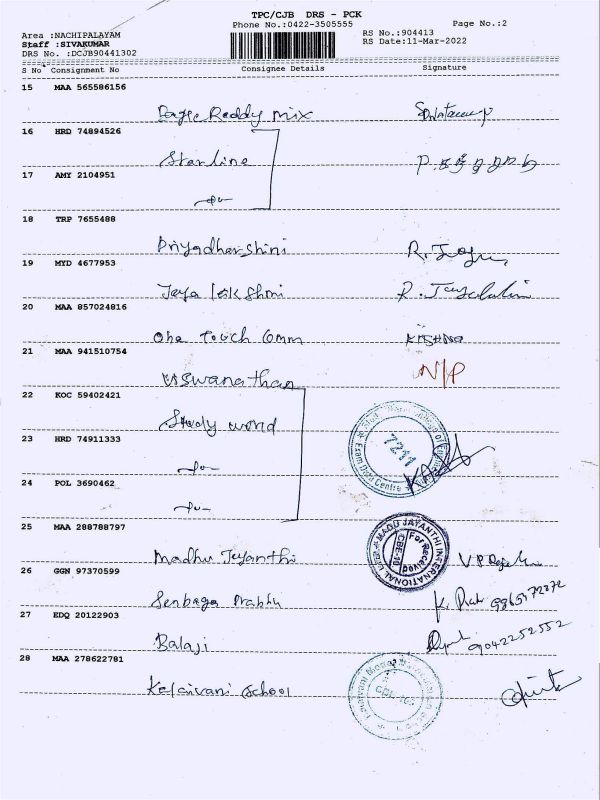 TPC/CJB DRS - PCK
Phone No.:0422-3505555
Page No.:2
Area :NACHIPALAYAM
Staff :SIVAKUMAR
DRS No. :DCJB90441302
RS No.:904413
RS Date:11-Mar-2022
S No Consignment No Consignee Details Signature
15 MAA 565586156
Reddy mix
16 HRD 74894526
Starline
17 AMY 2104951
18 TRP 7655488
Priyadharshini
19 MYD 4677953
Jaya lakshmi R.
20 MAA 857024816
One Touch Comm KRISHNA
21 MAA 941510754
Viswanathan N/P
22 KOC 59402421
Study world
23 HRD 74911333
7211
Exam Deal Centre
24 POL 3690462
25 MAA 288788797
MADU JAYANTHI INTERNATIONAL
For Received
CBE-10
Madhu Jeyanthi
26 GGN 97370599
Senbaga Prabhu
27 EDQ 20122903
Balaji 9042252552
28 MAA 278622781
Kalaivani School